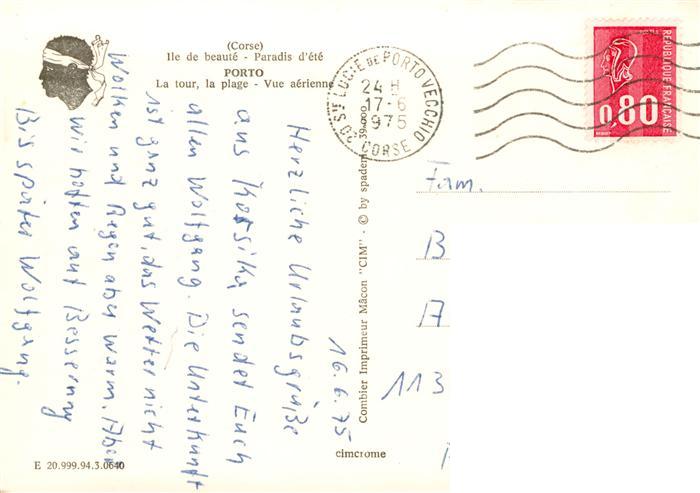 (Corse)
Ile de beauté - Paradis d'été
PORTO
La tour, la plage - Vue aérienne
16.6.75
Herzliche Urlaubsgrüße
aus sendet Euch
allen Wolfgang. Die Unterkunft
ist ganz gut, das Wetter nicht
Wolken und Regen aber warm. Aber
wir hoffen auf Besserung
Bis später Wolfgang.
E 20.999.94.3.0640
cimcrome
Combier Imprimeur Mâcon "CIM" - © by spadem
39.000
20 STE LUCIE DE PORTO VECCHIO
24 H
17-6
1975
CORSE
REPUBLIQUE FRANÇAISE
0,80
Fam.
B
A
113